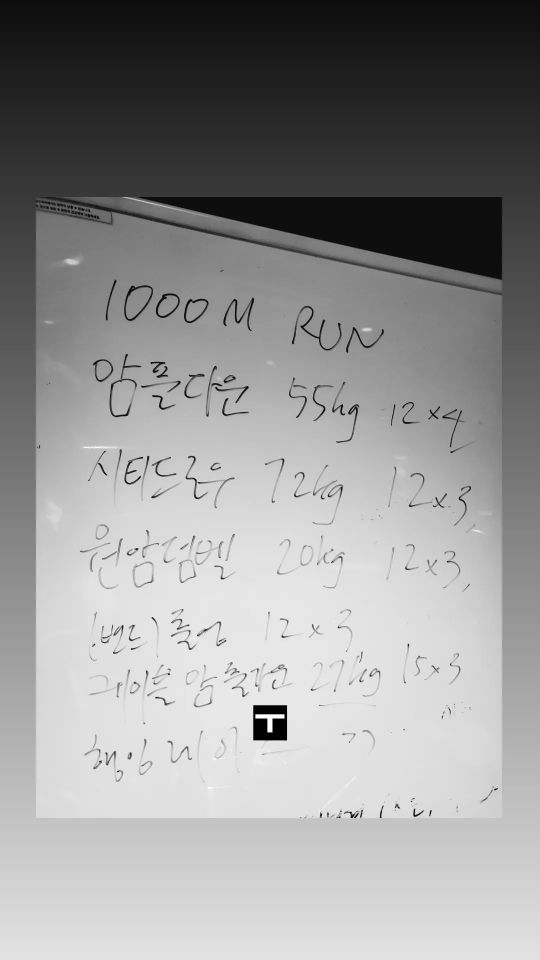 1000M RUN
암풀다운 55kg 12×4
시티드로우 72kg 12×3,
원암덤벨 20kg 12×3,
(밴드) 풀업 12×3
케이블 암풀다운 27kg 15×3
행잉 레이
T